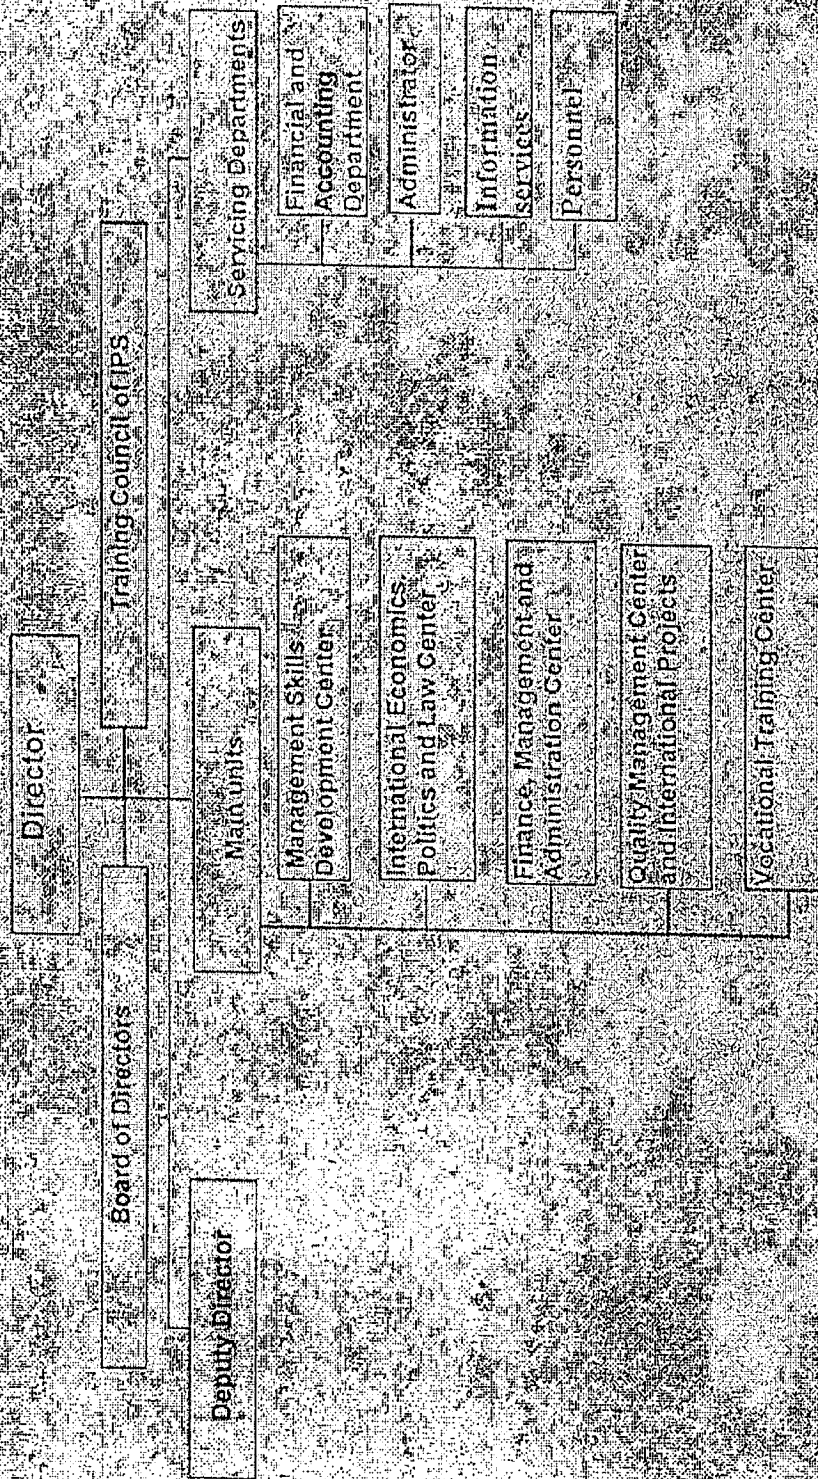 Director
Board of Directors
Training Council of IPS
Deputy Director
Main units
Servicing Departments
Management Skills
Development Center
International Economics,
Politics and Law Center
Finance, Management and
Administration Center
Quality Management Center
and International Projects
Vocational Training Center
Financial and
Accounting
Department
Administrator
Information
services
Personnel